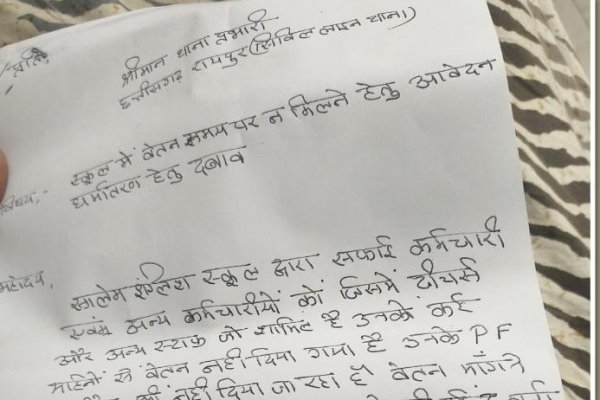 प्रति,
श्रीमान थाना प्रभारी
छत्तीसगढ़ रायपुर (सिविल लाइन थाना)
विषय:- स्कूल में वेतन समय पर न मिलने हेतु आवेदन
धर्मातरण हेतु दबाव
महोदय,
सालेम इंग्लिश स्कूल द्वारा सफाई कर्मचारी
एवं अन्य कर्मचारीयों को जिसमें टीचर्स
और अन्य स्टाफ जो शामिल है उनको कई
महिनों से वेतन नही दिया गया है उनके PF
नहीं दिया जा रहा है। वेतन माँगने